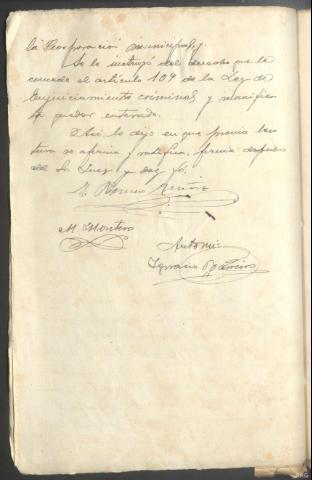 la Corporación municipal.
Se le instruyó del derecho que le
concede el artículo 109 de la Ley de
Enjuiciamiento criminal y manifies-
ta quedar enterado.
Así lo dijo en que previa lec-
tura se afirma y ratifica, firma después
del Sr. Juez y doy fé.
M. Romero
M. Montero
Antemi:
Ignacio